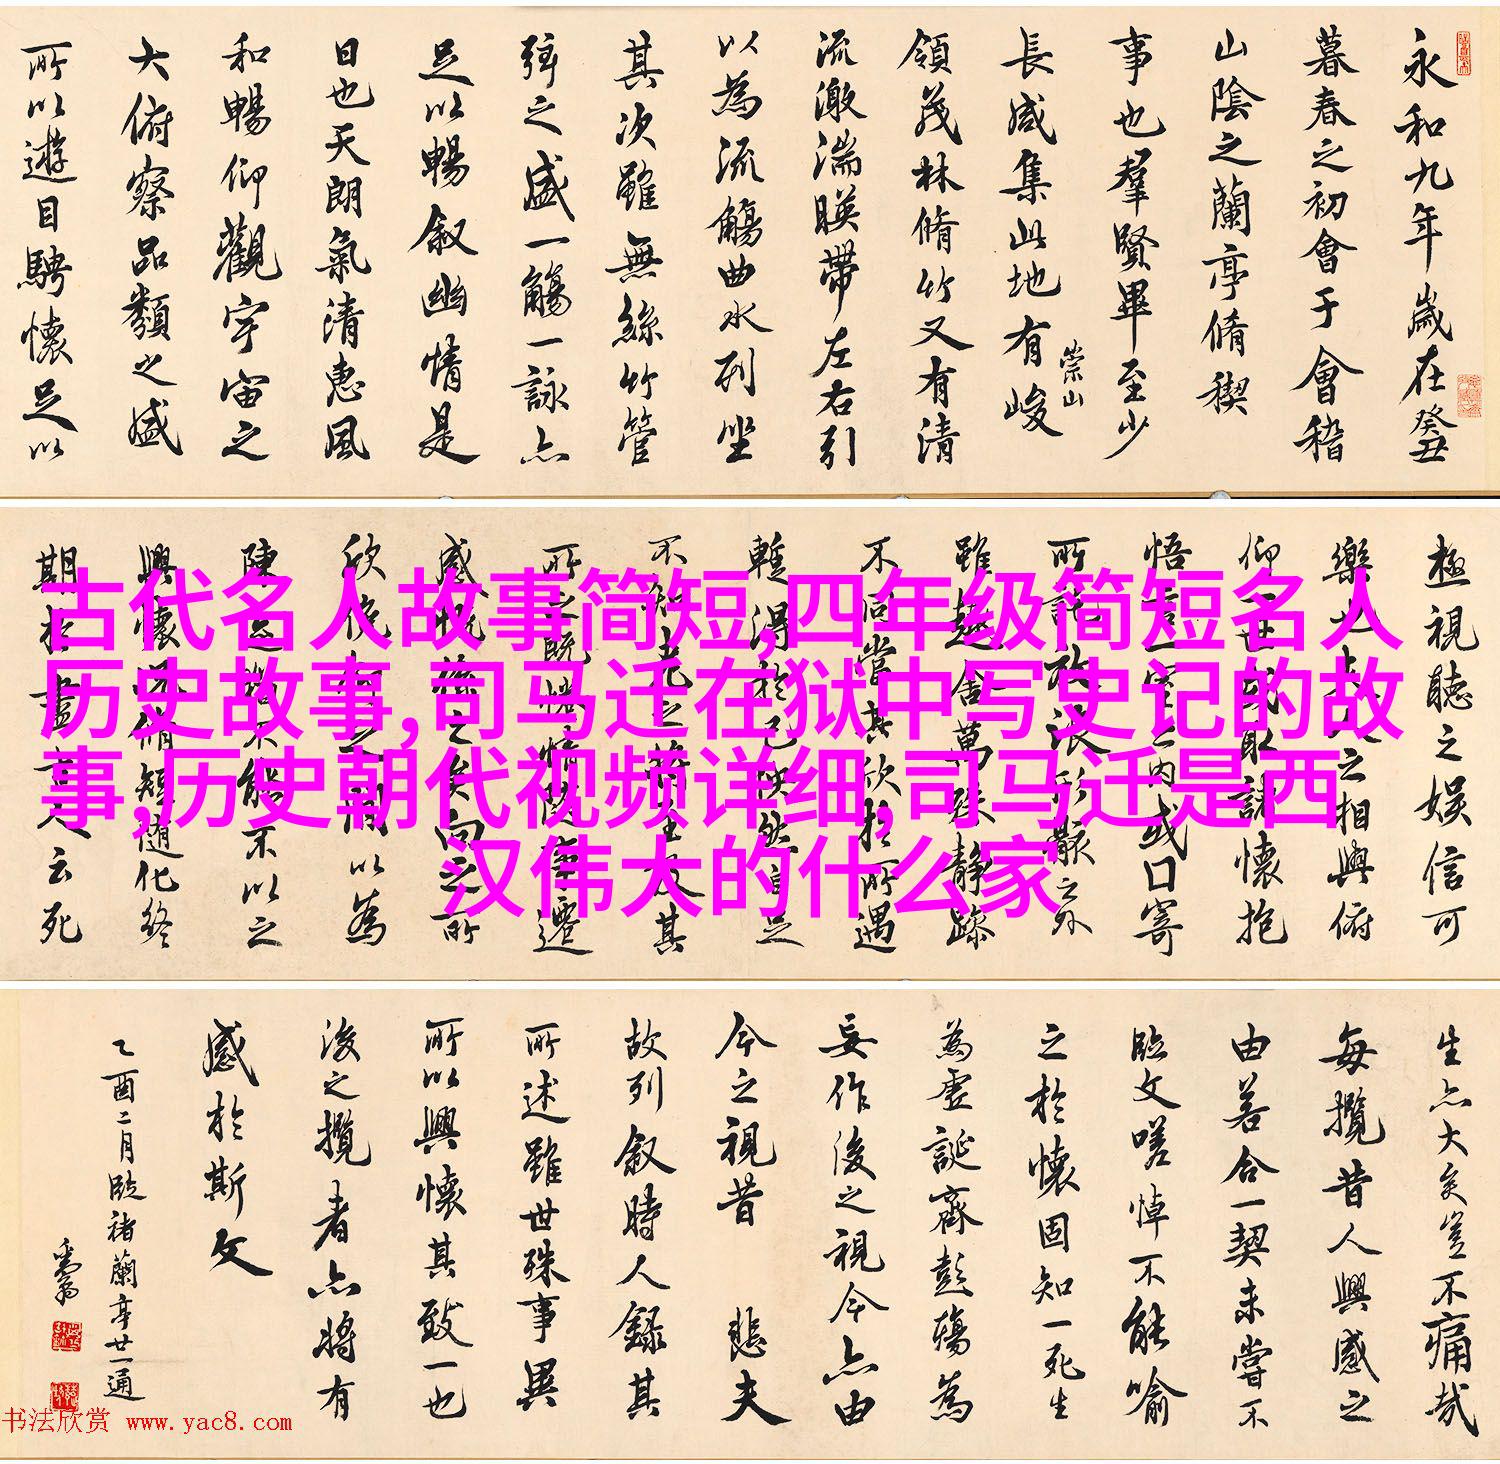 永和九年歲在癸丑
暮春之初會于會稽
山陰之蘭亭脩稧
事也羣賢畢至少
長咸集此地有峻
崇山
領茂林脩竹又有清
流激湍暎帶左右引
以為流觴曲水列坐
其次雖無絲竹管
弦之盛一觴一詠亦
足以暢叙幽情是
日也天朗氣清惠風
和暢仰觀宇宙之
大俯察品類之盛
所以遊目騁懷足以
極視聽之娛信可
樂也夫人之相與俯
仰一世或取諸懷抱
悟言一室之內或
所託放浪形骸之外
雖趣舍萬殊靜躁
不同當其欣於所遇
暫得於己怏然自足
不知老之將至及其
所之既惓情隨事遷
感慨係之矣向之所
欣俛仰之間以為
陳迹猶不能不以之
興懷況脩短隨化終
期於盡古人云死
生亦大矣豈不痛哉
每攬昔人興感之
由若合一契未嘗不
臨文嗟悼不能喻
之於懷固知一死生
為虛誕齊彭殤為
妄作後之視今亦由
今之視昔 悲夫
故列叙時人錄其
所述雖世殊事異
所以興懷其致一也
後之攬者亦將有
感於斯文
乙酉二月臨褚蘭亭廿一通
古代名人故事简短,四年级简短名人
历史故事,司马迁在狱中写史记的故
事,历史朝代视频详细,司马迁是西
汉伟大的什么家
书法欣赏 www.yac8.com